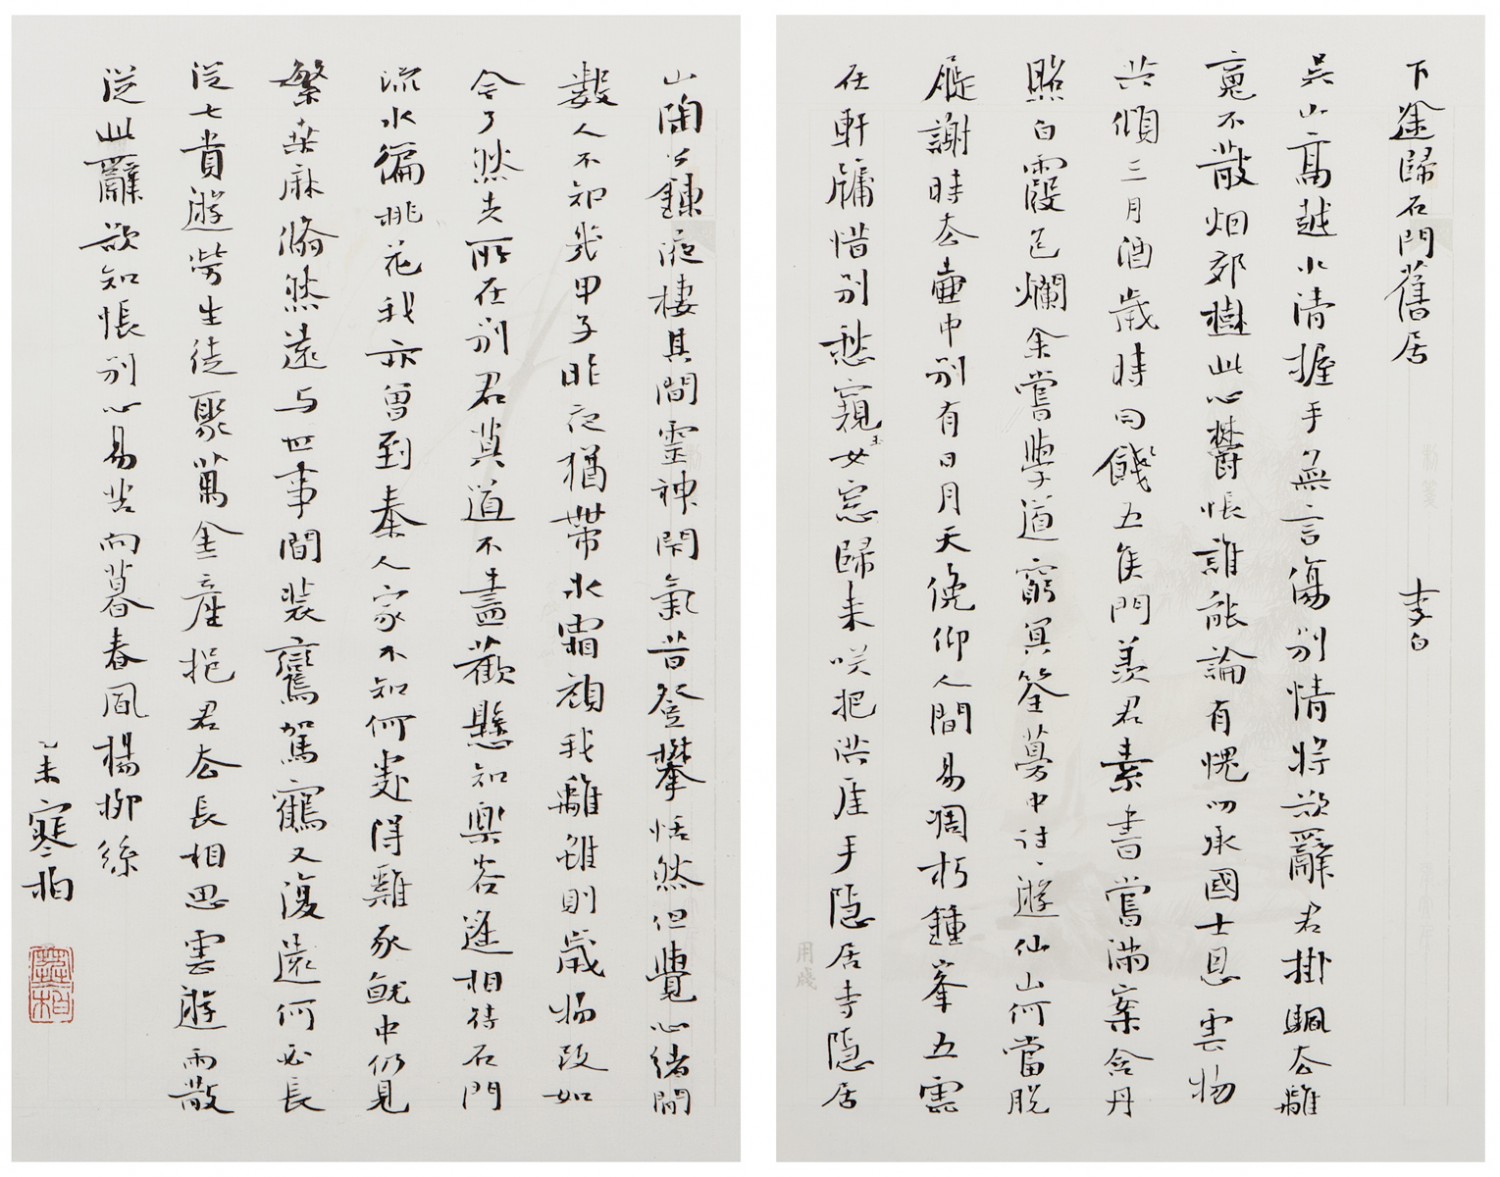 下途歸石門舊居 李白
吳山高越水清握手無言傷別情將欲辭君掛颿去離
魂不散烟郊樹此心鬱悵誰能論有愧叨承國士恩雲物
共傾三月酒歲時同餞五侯門羨君素書嘗滿案含丹
照白霞色爛余嘗學道窮冥筌夢中往〻遊仙山何當脫
屣謝時去壺中別有日月天俛仰人間易凋朽鍾峯五雲
在軒牖惜別愁窺玉女窓歸來咲把洪崖手隱居寺隱居
山陶公鍊液棲其間靈神閉氣昔登攀恬然但覺心緒閒
數人不知幾甲子昨夜猶帶冰霜顏我離雖則歲物改如
今了然失所在別君莫道不盡歡懸知樂客遙相待石門
流水徧桃花我亦曾到秦人家不知何處得雞豕就中仍見
繁桑麻翛然遠與世事間裝鸞駕鶴又復遠何必長
從七貴遊勞生徒聚萬金產挹君去長相思雲遊雨散
從此辭欲知悵別心易苦向暮春風楊柳絲
乙未寒柏